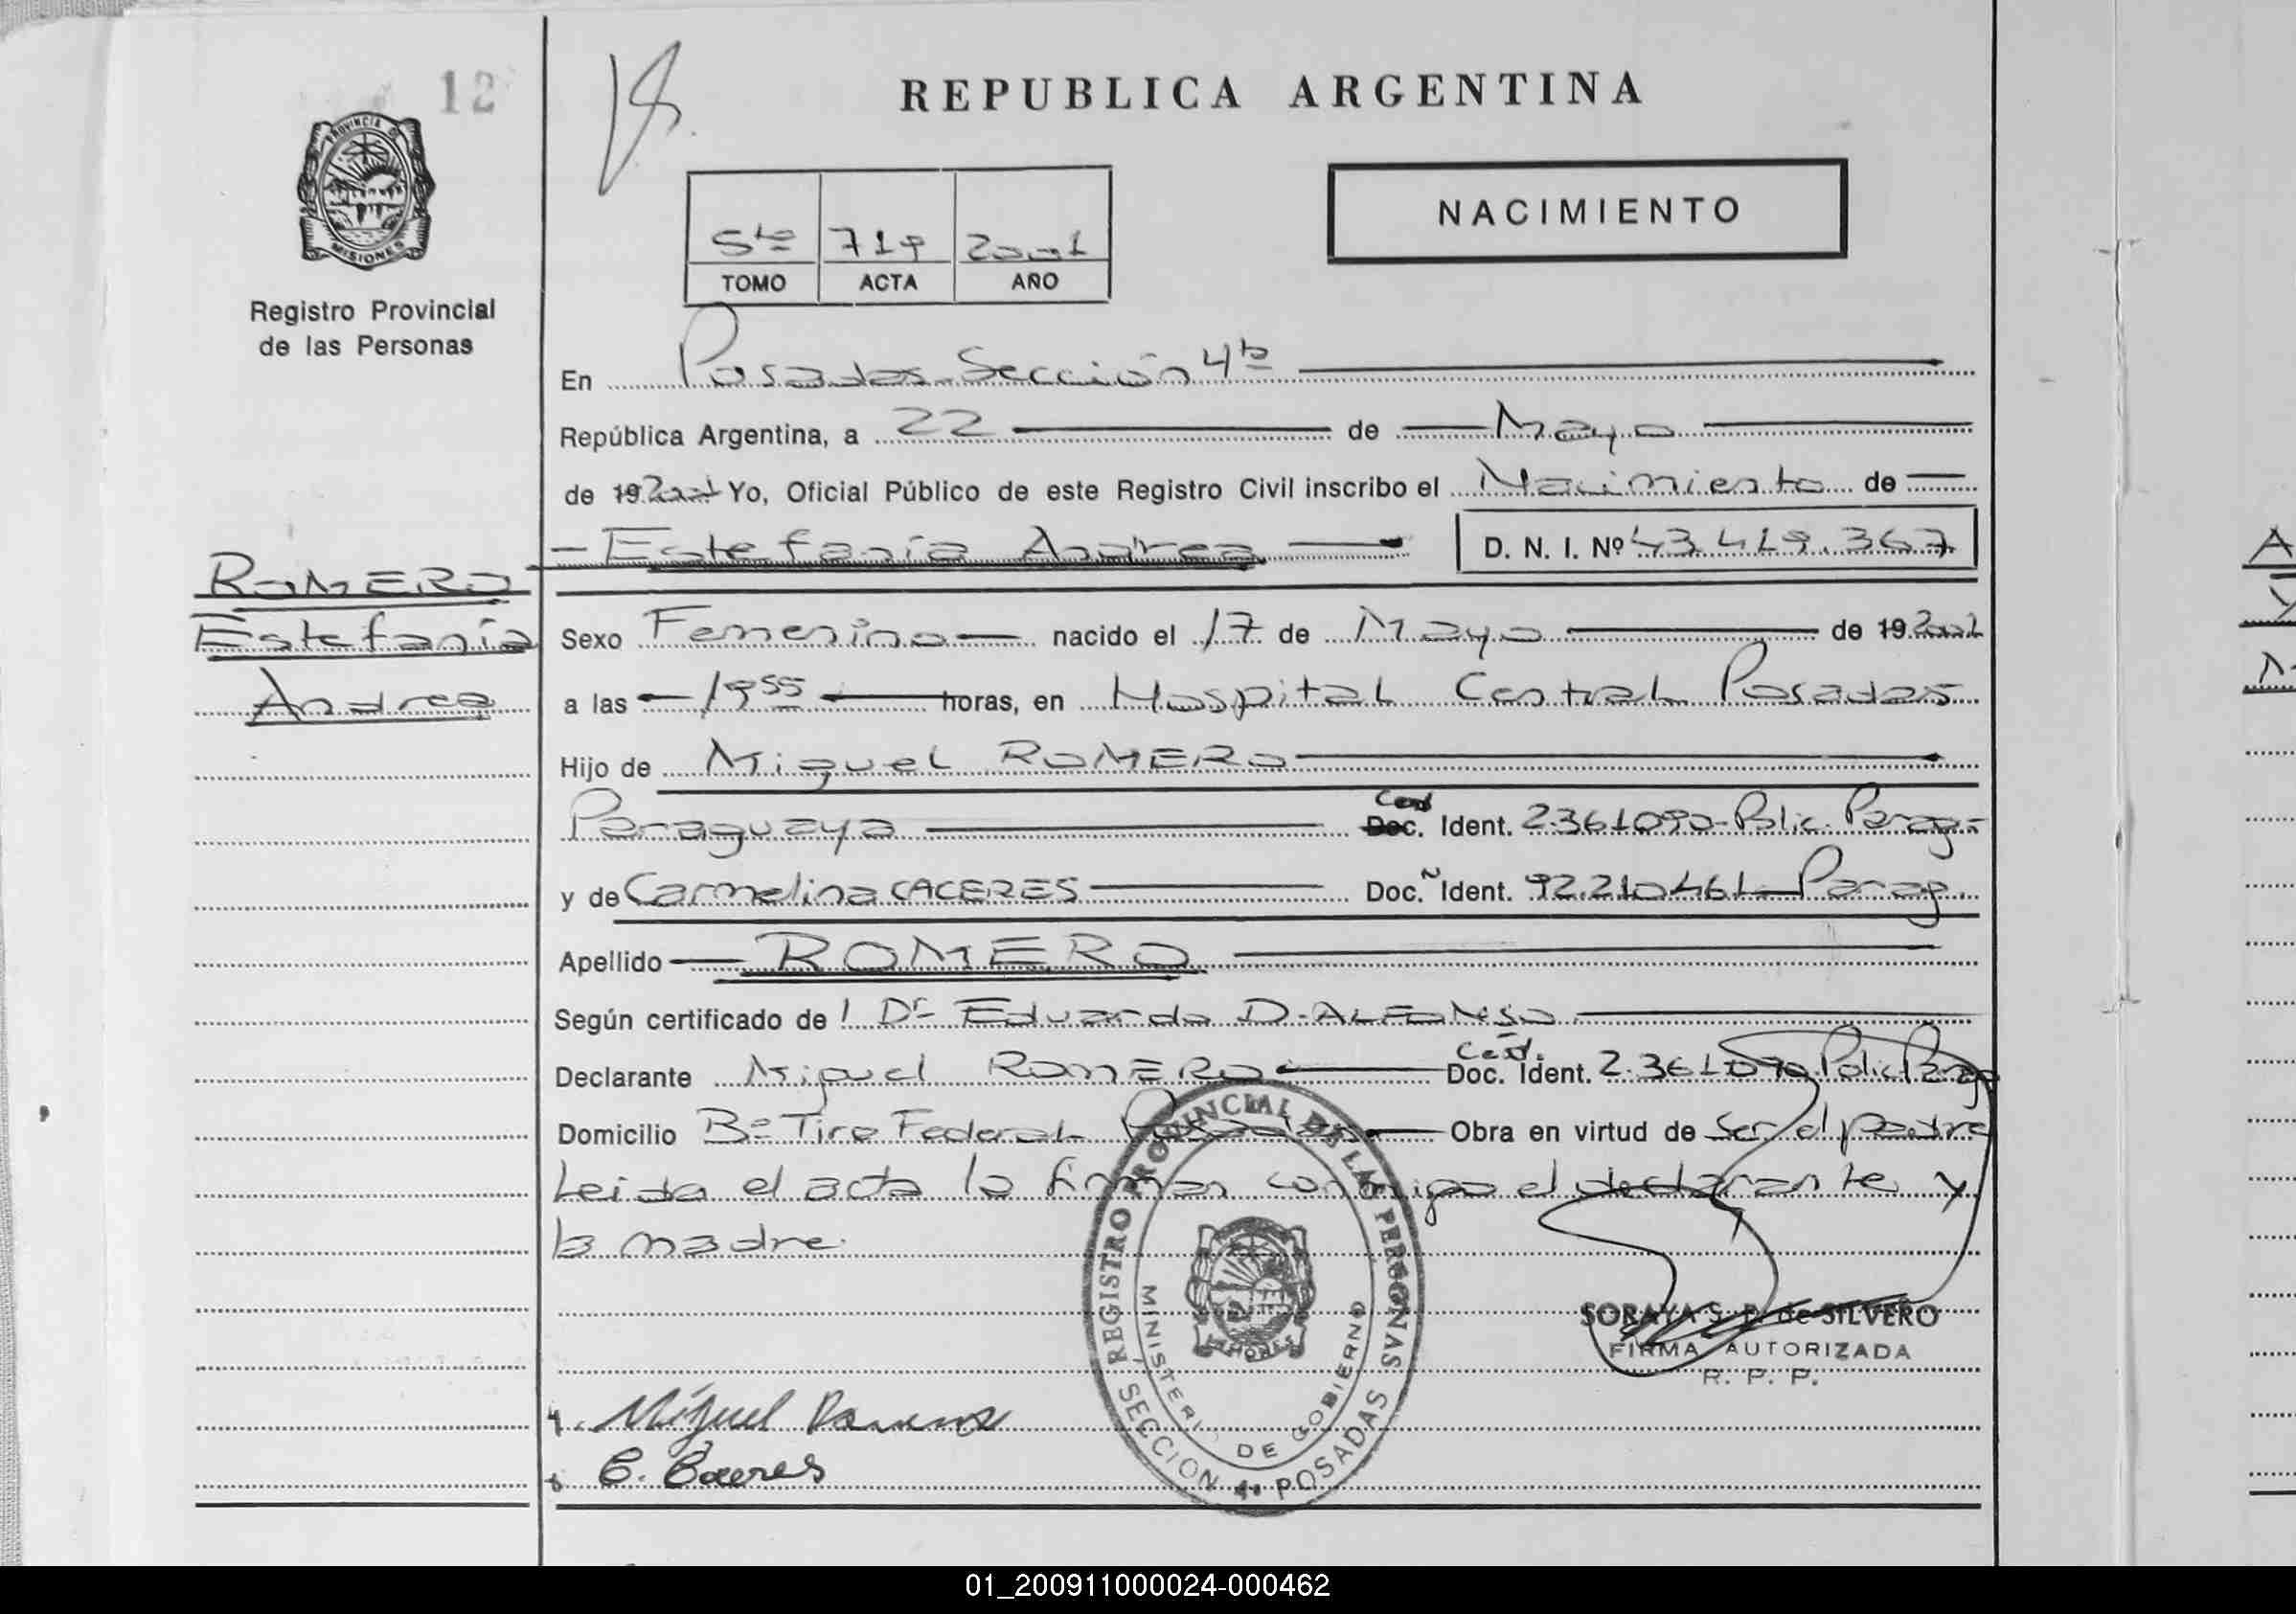 12
PROVINCIA DE
MISIONES
Registro Provincial
de las Personas
ROMERO
Estefanía
Andrea
REPUBLICA ARGENTINA
NACIMIENTO
5to 719 2001
TOMO ACTA AÑO
En Posadas-Sección 4ta
República Argentina, a 22 de Mayo
de 19 2001 Yo, Oficial Público de este Registro Civil inscribo el Nacimiento de
Estefanía Andrea D. N. I. Nº 43.419.367
Sexo Femenino nacido el 17 de Mayo de 19 2001
a las 19 55 horas, en Hospital Central Posadas
Hijo de Miguel ROMERO
Paraguaya Ced Doc. Ident. 2361090-Polic. Parag-
y de Carmelina CACERES Doc. Ident. 92.210.461- Parag.
Apellido ROMERO
Según certificado de l Dr Eduardo D. ALFONSO
Declarante Miguel ROMERO Ced. Doc. Ident. 2.361090 Polic Parag
Domicilio Bº Tiro Federal Posadas Obra en virtud de ser el padre
Leida el acta la firman conmigo el declarante y
la madre.
REGISTRO PROVINCIAL DE LAS PERSONAS
MINISTERIO DE GOBIERNO
MISIONES
SECCION 4a POSADAS
SORAYA S. P. de SILVERO
FIRMA AUTORIZADA
R. P. P.
Miguel Romero
C. Caceres
01_200911000024-000462